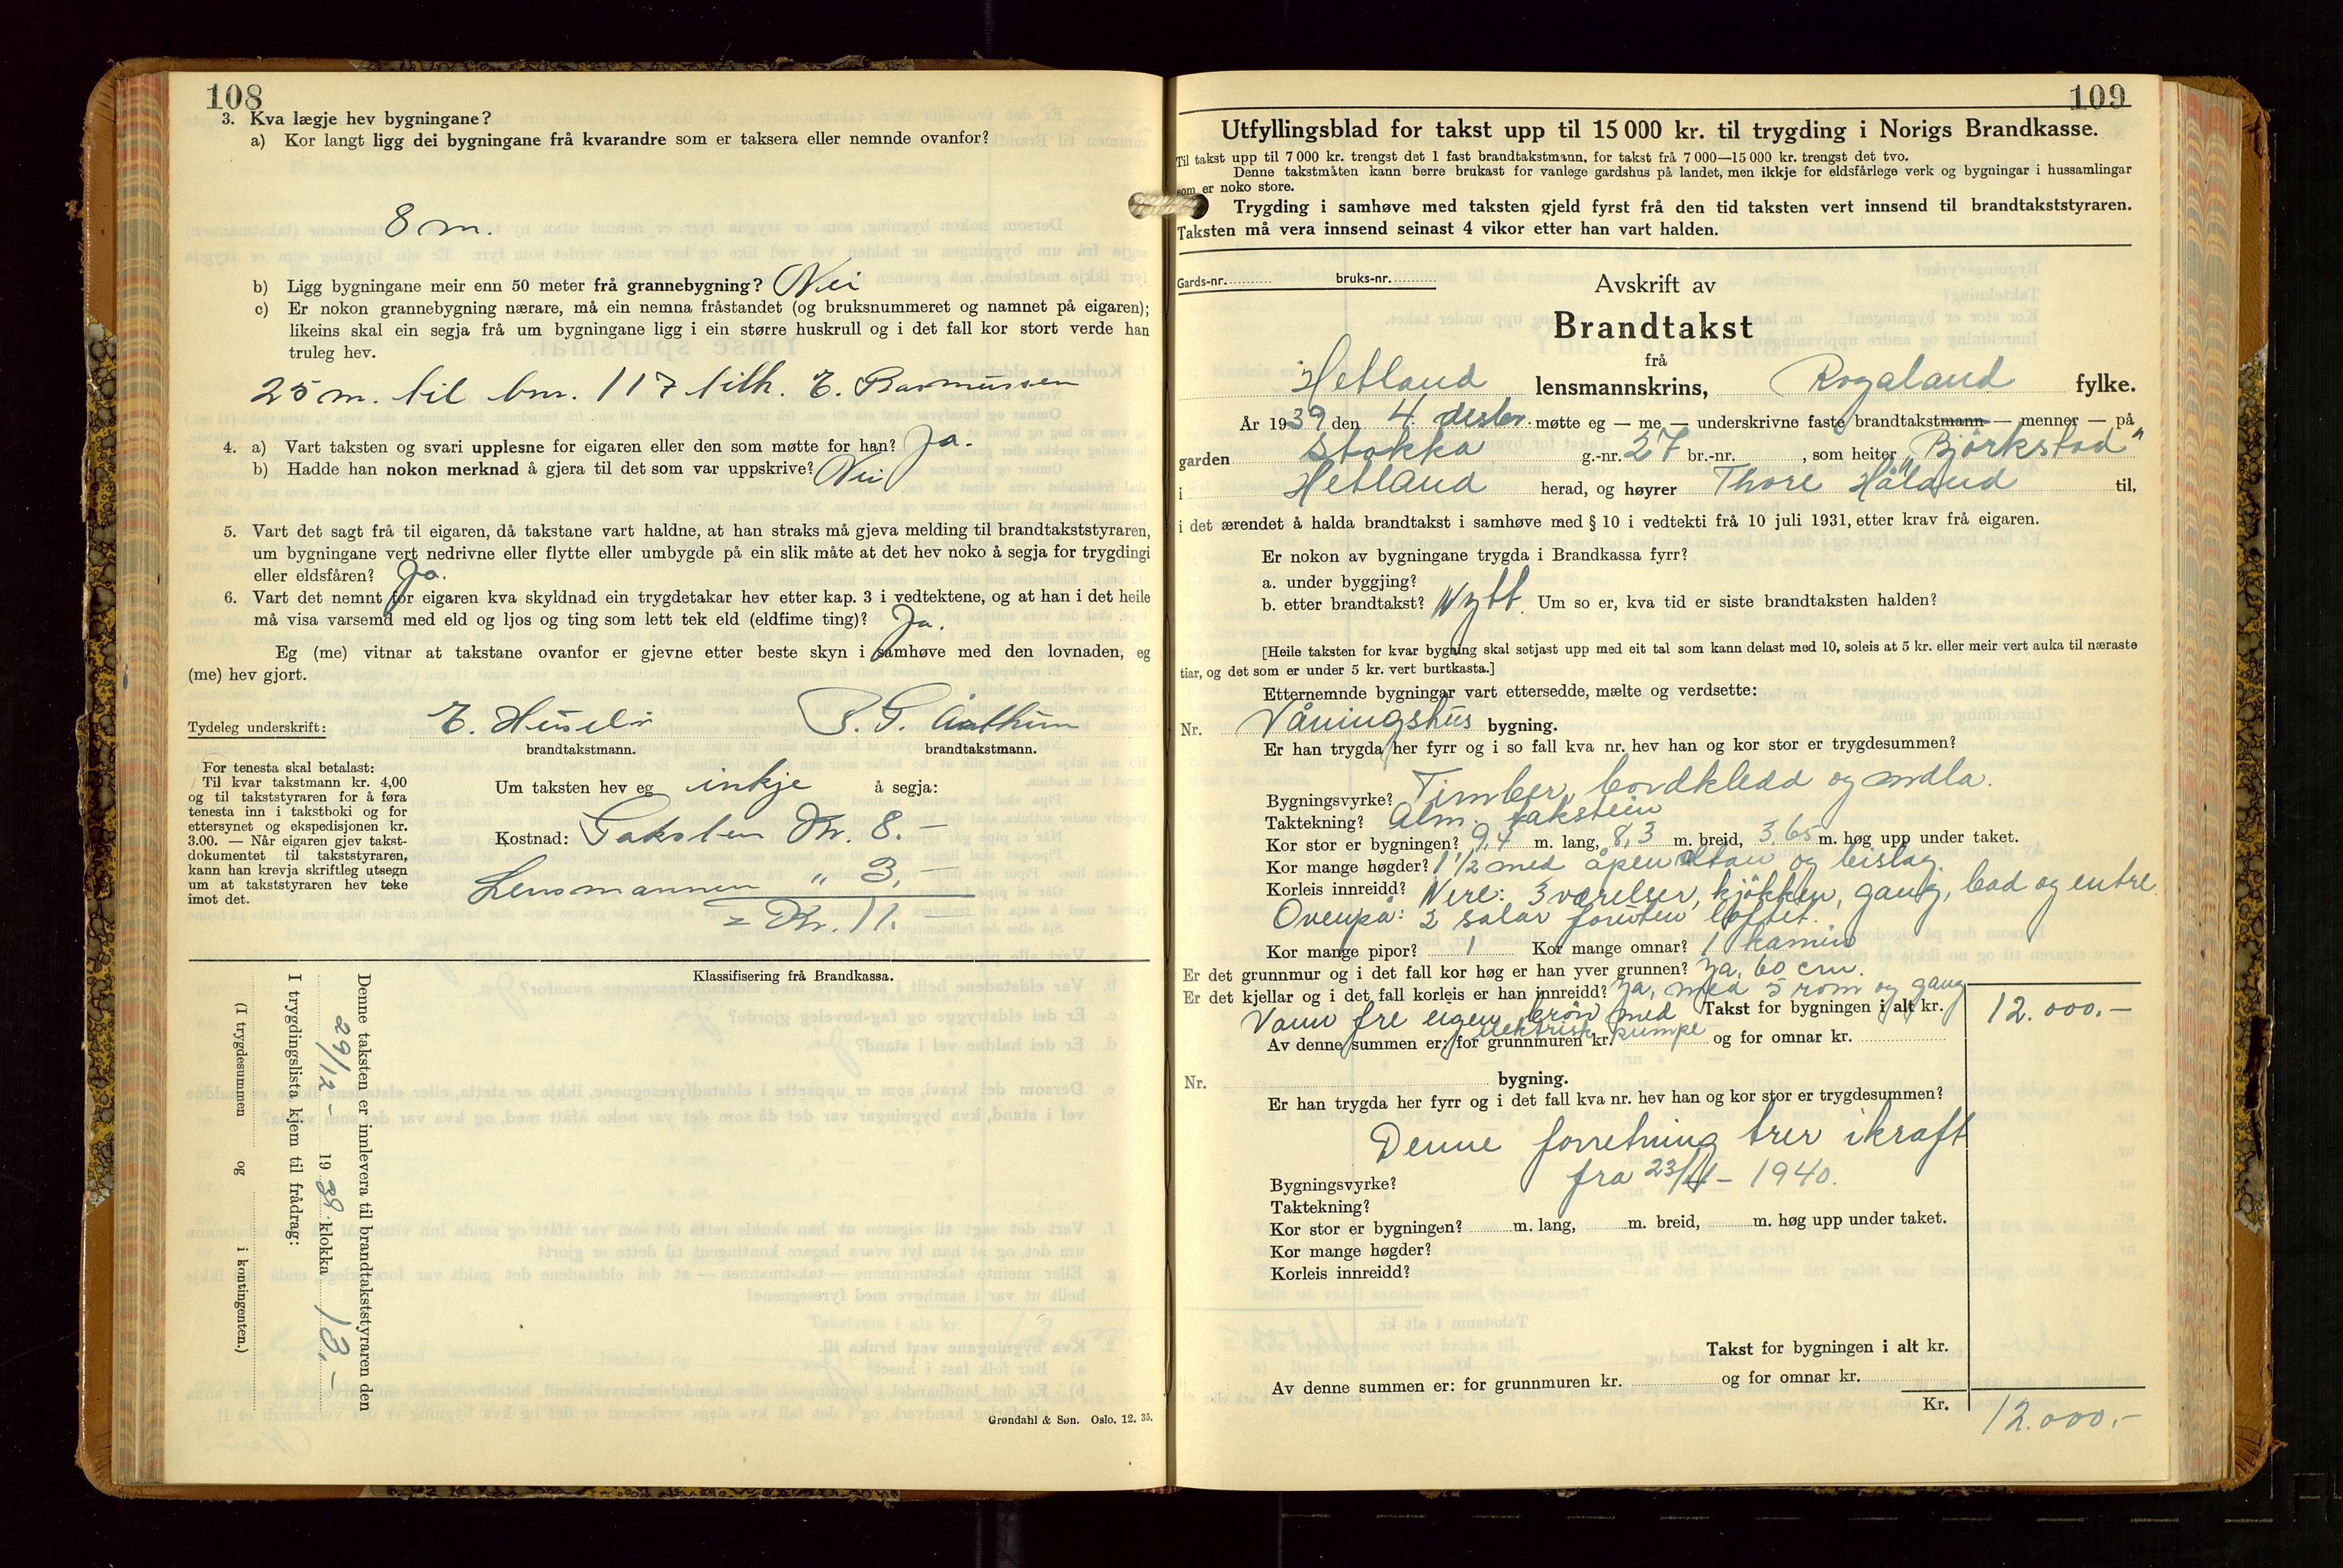 108
3. Kva lægje hev bygningane?
a) Kor langt ligg dei bygningane frå kvarandre som er taksera eller nemnde ovanfor?
8 m.
b) Ligg bygningane meir enn 50 meter frå grannebygning? Nei
c) Er nokon grannebygning nærare, må ein nemna fråstandet (og bruksnummeret og namnet på eigaren);
likeins skal ein segja frå um bygningane ligg i ein større huskrull og i det fall kor stort verde han
truleg hev.
25 m. til bnr. 117 tilh. E. Rasmussen
4. a) Vart taksten og svari upplesne for eigaren eller den som møtte for han? Ja.
b) Hadde han nokon merknad å gjera til det som var uppskrive? Nei
5. Vart det sagt frå til eigaren, då takstane vart haldne, at han straks må gjeva melding til brandtakststyraren,
um bygningane vert nedrivne eller flytte eller umbygde på ein slik måte at det hev noko å segja for trygdingi
eller eldsfåren? Ja.
6. Vart det nemnt for eigaren kva skyldnad ein trygdetakar hev etter kap. 3 i vedtektene, og at han i det heile
må visa varsemd med eld og ljos og ting som lett tek eld (eldfime ting)? Ja.
Eg (me) vitnar at takstane ovanfor er gjevne etter beste skyn i samhøve med den lovnaden, eg
(me) hev gjort.
Tydeleg underskrift: E.
brandtakstmann. brandtakstmann.
For tenesta skal betalast:
Til kvar takstmann kr. 4,00
og til takststyraren for å føra
tenesta inn i takstboki og for
ettersynet og ekspedisjonen kr.
3.00. — Når eigaren gjev takst-
dokumentet til takststyraren,
kann han krevja skriftleg utsegn
um at takststyraren hev teke
imot det.
Um taksten hev eg inkje å segja:
Kostnad: Taksten Kr. 8.—
Lensmannen " 3,—
= Kr. 11.—
Klassifisering frå Brandkassa.
Denne taksten er innlevera til brandtakststyraren den
29/12 – 1939 klokka 13.–
I trygdingslista kjem til frådrag:
(I trygdesummen og i kontingenten.)
Grøndahl & Søn. Oslo. 12. 35.
109
Utfyllingsblad for takst upp til 15 000 kr. til trygding i Norigs Brandkasse.
Til takst upp til 7 000 kr. trengst det 1 fast brandtakstmann, for takst frå 7 000—15 000 kr. trengst det tvo.
Denne takstmåten kann berre brukast for vanlege gardshus på landet, men ikkje for eldsfårlege verk og bygningar i hussamlingar
som er noko store.
Trygding i samhøve med taksten gjeld fyrst frå den tid taksten vert innsend til brandtakststyraren.
Taksten må vera innsend seinast 4 vikor etter han vart halden.
Gards-nr. bruks-nr.
Avskrift av
Brandtakst
frå
Hetland lensmannskrins, Rogaland fylke.
År 1939 den 4. desbr møtte eg — me — underskrivne faste brandtakstmann — menner — på
garden Stokka g.-nr. 27 br.-nr. , som heiter „Bjørkstad“
i Hetland herad, og høyrer Thore Håland til,
i det ærendet å halda brandtakst i samhøve med § 10 i vedtekti frå 10 juli 1931, etter krav frå eigaren.
Er nokon av bygningane trygda i Brandkassa fyrr?
a. under byggjing?
b. etter brandtakst? Nytt. Um so er, kva tid er siste brandtaksten halden?
[Heile taksten for kvar bygning skal setjast upp med eit tal som kann delast med 10, soleis at 5 kr. eller meir vert auka til næraste
tiar, og det som er under 5 kr. vert burtkasta.]
Etternemnde bygningar vart ettersedde, mælte og verdsette:
Nr. Våningshus bygning.
Er han trygda her fyrr og i so fall kva nr. hev han og kor stor er trygdesummen?
Bygningsvyrke? Timber, bordkledd og måla.
Taktekning? Alm. takstein
Kor stor er bygningen? 9,4 m. lang, 8,3 m. breid, 3,65 m. høg upp under taket.
Kor mange høgder? 1 1/2 med åpen altan og bislag
Korleis innreidd? Nere: 3 værelser, kjøkken, gang, bad og entre.
Ovenpå: 2 salar foruten loftet.
Kor mange pipor? 1 Kor mange omnar? 1 kamin
Er det grunnmur og i det fall kor høg er han yver grunnen? Ja, 60 cm.
Er det kjellar og i det fall korleis er han innreidd? Ja, med 5 rom og gang
Vann fre eigen brøn med Takst for bygningen i alt kr. 12.000.–
elektrisk pumpe
Av denne summen er: for grunnmuren kr. og for omnar kr.
Nr. bygning.
Er han trygda her fyrr og i det fall kva nr. hev han og kor stor er trygdesummen?
Denne forretning trer ikraft
fra 23/4 – 1940.
Bygningsvyrke?
Taktekning?
Kor stor er bygningen? m. lang, m. breid, m. høg upp under taket.
Kor mange høgder?
Korleis innreidd?
Takst for bygningen i alt kr.
Av denne summen er: for grunnmuren kr. og for omnar kr.
Kr. 12.000,–